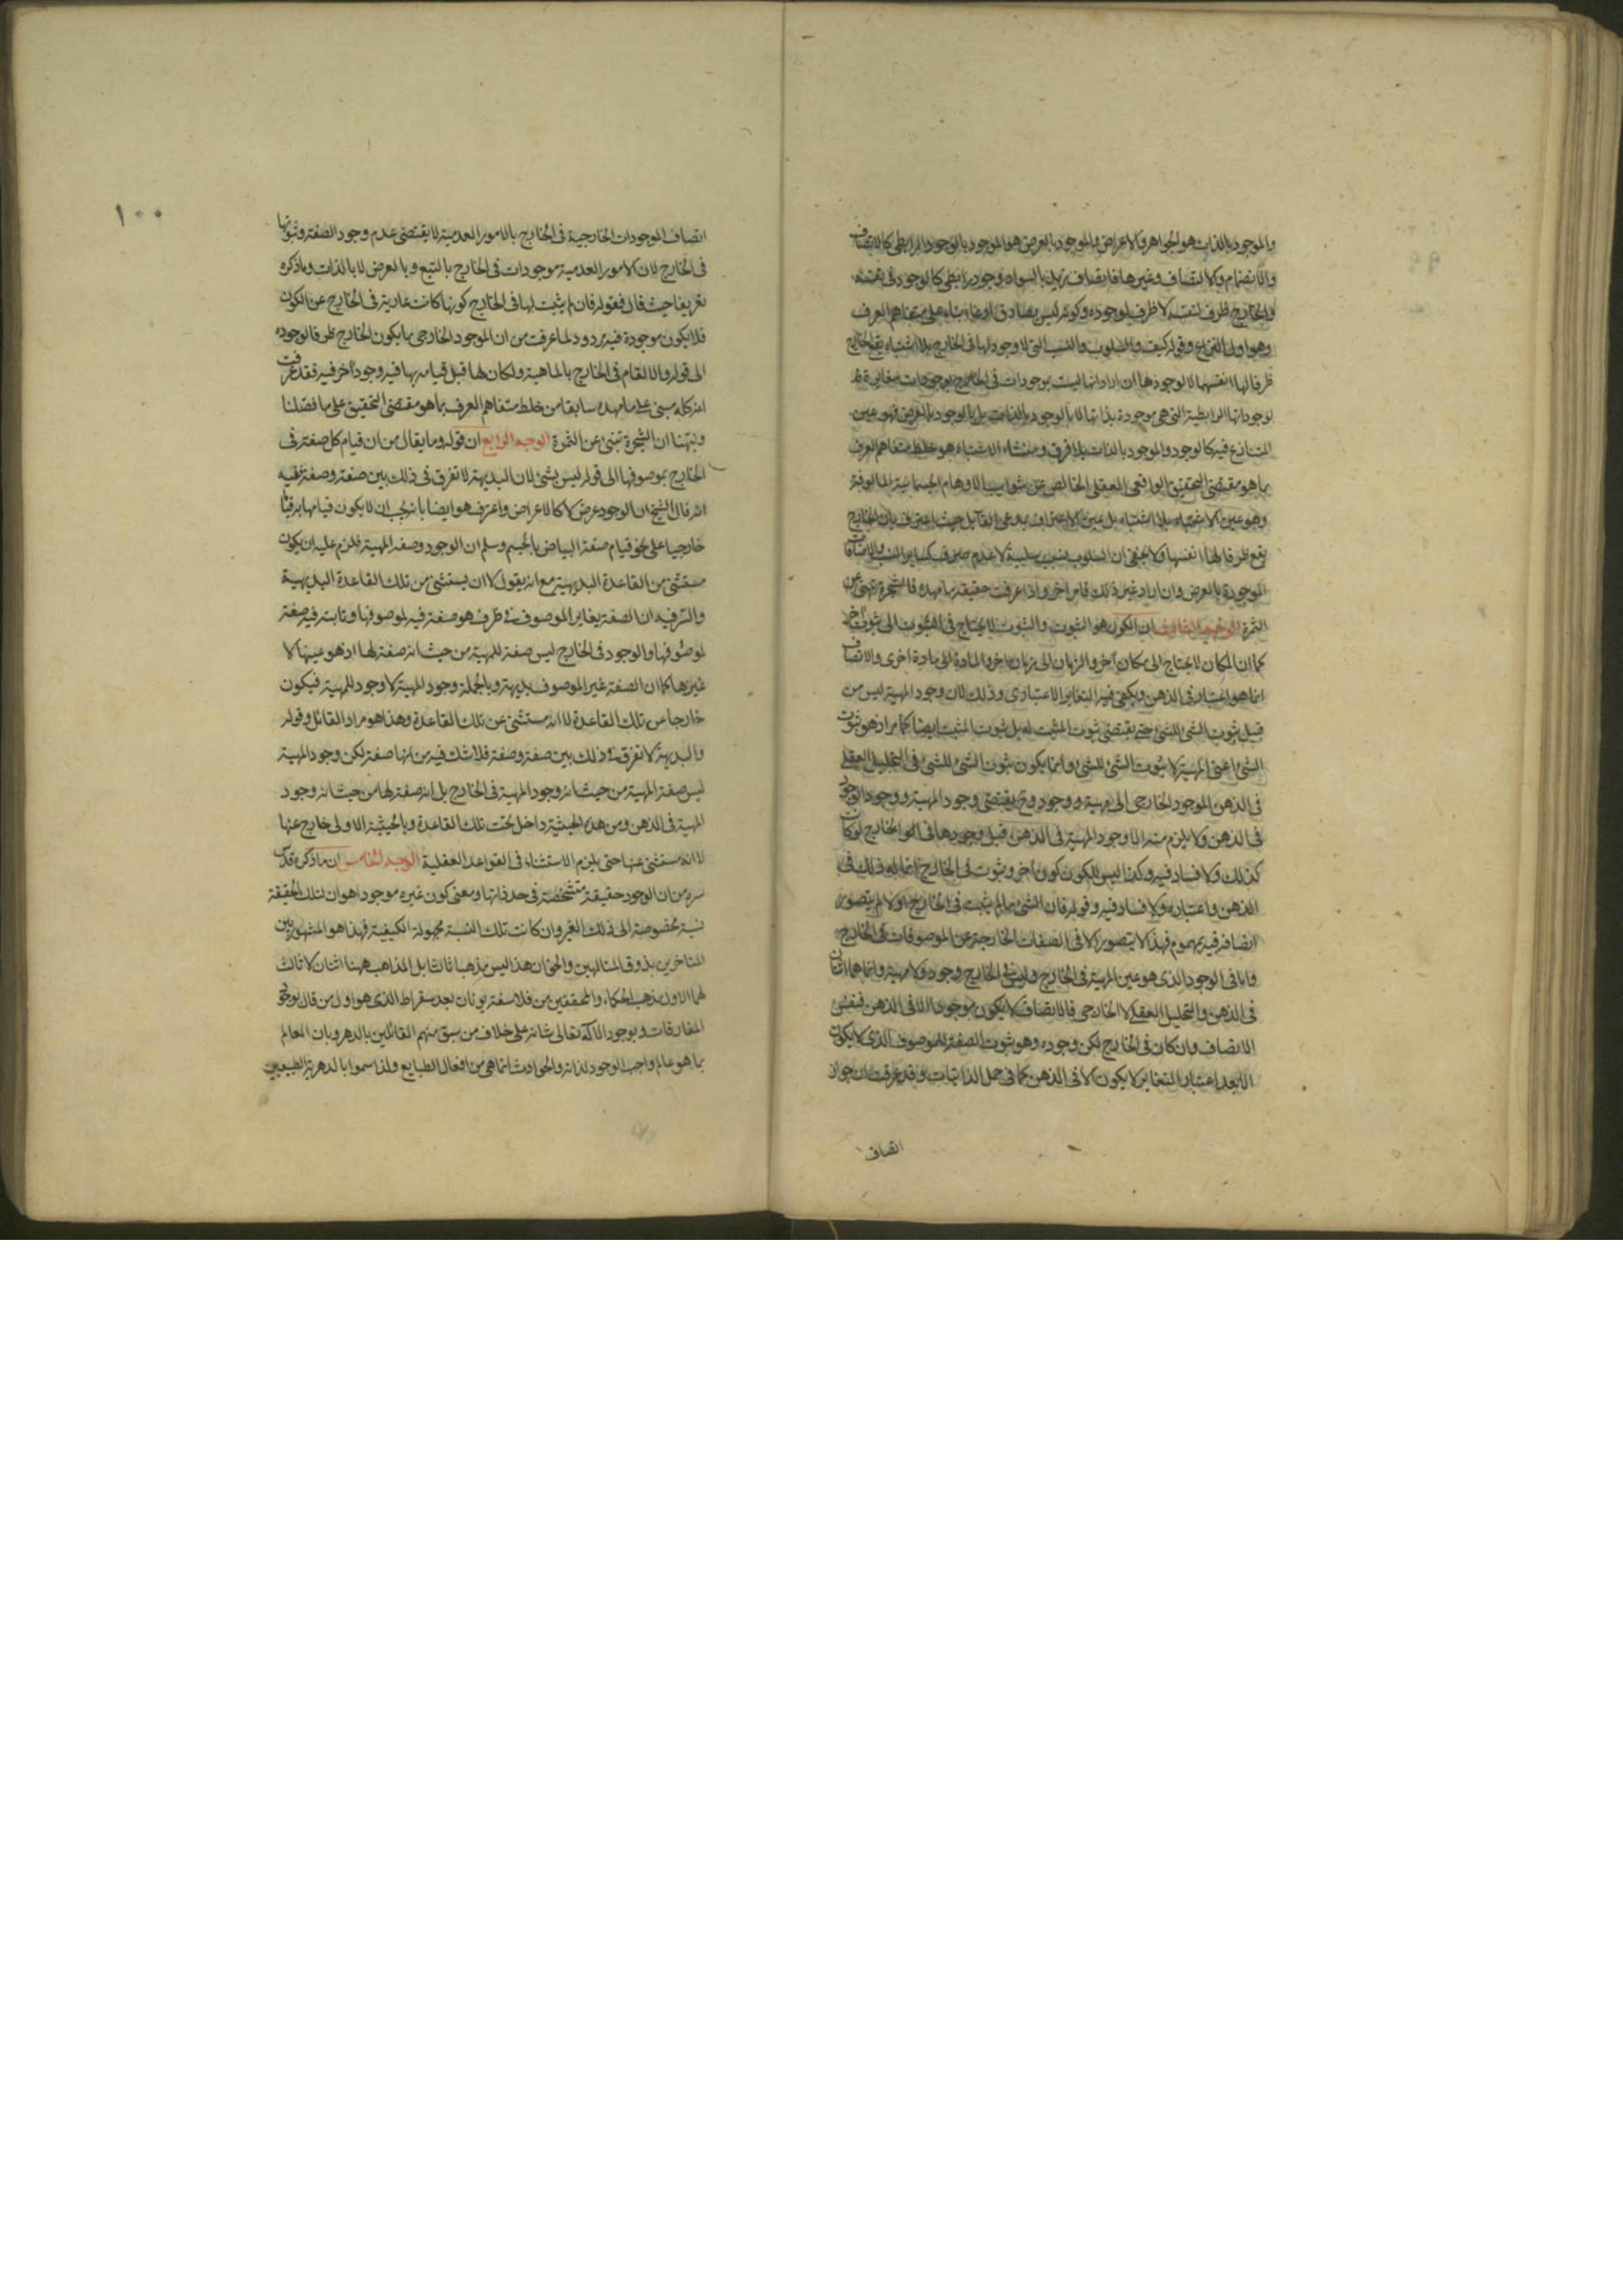 ٩٩
والموجود بالذات هو الجواهر والاعراض والموجود بالعرض هو الموجود بالوجود الرابطى كالاتصاف
والانضمام والاتصاف وغيرها فاتصاف زيد بالسواد وجود رابطى كالوجود فى نفسه
والخارج ظرف لنفسه لا ظرف لوجوده وكونه ليس بصادق
وهو اول النزاع وقوله كيف والسلوب والنسب التى لا وجود لها فى الخارج بلا اشتباه يقع الخارج
ظرفا لها انفسها لا لوجودها ان اراد انها ليست بموجودات فى الخارج بوجودات مغايرة
لوجوداتها الرابطية التى هى موجودة بذاتها لا بالوجود بالذات بل بالوجود بالعرض فهو عين
المتنازع فيه كالوجود والموجود بالذات بلا فرق ومنشاء الاشتباه هو خلط متفاهم العرف
بما هو مقتضى التحقيق الواقعى العقلى الخالص عن شوايب الاوهام الجسمانية المالوفة
وهو عين الاشتباه بلا اشتباه بل عين الاعتراف بمدعى القايل حيث اعترف بان الخارج
يقع ظرفا لها انفسها ولا يخفى ان السلوب نسب سلبية لا عدم صرف كساير النسب والاضافات
الموجودة بالعرض وان اراد غير ذلك فامر اخر واذا عرفت حقيقة ما مهده فالشجرة تنبئ عن
الثمرة الوجه الثالث ان الكون هو الثبوت والثبوت لا يحتاج فى الثبوت الى ثبوت آخر
كما ان المكان لا يحتاج الى مكان آخر والزمان الى زمان اخر والمادة الى مادة اخرى والاتصاف
انما هو اعتبار فى الذهن ويكفى فيه التغاير الاعتبارى وذلك لان وجود المهية ليس من
قبيل ثبوت الشئ للشئ حتى يقتضى ثبوت المثبت له بل ثبوت المثبت ايضا كما مر اذ هو ثبوت
الشئ اعنى المهية لا ثبوت الشئ للشئ وانما يكون ثبوت الشئ للشئ فى التحليل العقلى
فى الذهن الموجود الخارجى الى مهية ووجود وح يقتضى وجود المهية ووجود الوجود
فى الذهن ولا يلزم منه الا وجود المهية فى الذهن قبل وجودها فى الخارج لو كان
كذلك ولا فساد فيه وكذا ليس للكون كون آخر وثبوت فى الخارج انما له ذلك فى
الذهن واعتباره ولا فساد فيه وقوله فان الشئ ما لم يثبت فى الخارج اولا لم يتصور
اتصافه فيه بمهموم فهذا لا يتصور الا فى الصفات الخارجة عن الموصوفات فى الخارج
واما فى الوجود الذى هو عين المهية فى الخارج وليس فى الخارج وجود ولا مهية وانما هما اثنان
فى الذهن والتحليل العقلى لا الخارجى فالاتصاف لا يكون موجودا الا فى الذهن فنفس
الاتصاف وان كان فى الخارج لكن وجوده وهو ثبوت الصفة للموصوف الذى لا يكون
الا بعد اعتبار التغاير لا يكون الا فى الذهن كما فى حمل الذاتيات وقد عرفت ان جواز
اتصاف
١٠٠
اتصاف الموجودات الخارجية فى الخارج بالامور العدمية لا يقتضى عدم وجود الصفة وثبوتها
فى الخارج لان الامور العدمية موجودات فى الخارج بالتبع وبالعرض لا بالذات وما ذكره
تفريعا حيث قال فقوله فان لم يثبت لها فى الخارج كونها كانت عارية فى الخارج عن الكون
فلا يكون موجودة فيه مردود لما عرفت من ان الموجود الخارجى ما يكون الخارج ظرفا لوجوده
الى قوله والا لقام فى الخارج بالماهية ولكان لها قبل قيامه بها فيه وجود آخر فيه فقد عرفت
انه كله مبنى على ما مهده سابقا من خلط متفاهم العرف بما هو مقتضى التحقيق على ما فصلنا
ونبهنا ان الشجرة تنبئ عن الثمرة الوجه الرابع ان قوله وما يقال من ان قيام كل صفة فى
الخارج بموصوفها الى قوله ليس بشئ لان البديهة لا تفرق فى ذلك بين صفة وصفة ففيه
انه قال الشيخ ان الوجود عرض لا كالاعراض واعترف هو ايضا بانه يجب ان لا يكون قيامها به قياما
خارجيا على نحو قيام صفة البياض بالجسم وسلم ان الوجود وصف المهية فلزم عليه ان يكون
مستثنى من القاعدة البديهية مع انه يقول لا ان يستثنى من تلك القاعدة البديهية
والسر فيه ان الصفة يغاير الموصوف فى ظرف هو صفة فيه لموصوفها وثابتة فيه صفة
لموصوفها والوجود فى الخارج ليس صفة للمهية من حيث انه صفة لها اذ هو عينها لا
غيرها كما ان الصفة غير الموصوف بديهة وبالجملة وجود المهية لا وجود للمهية فيكون
خارجا عن تلك القاعدة لا انه مستثنى عن تلك القاعدة وهذا هو مراد القائل وقوله
والبديهة لا تفرق فى ذلك بين صفة وصفة فلا شك فيه من انها صفة لكن وجود المهية
ليس صفة المهية من حيث انه وجود المهية فى الخارج بل انه صفة لها من حيث انه وجود
المهية فى الذهن ومن هذه الحيثية داخل تحت تلك القاعدة وبالحيثية الاولى خارج عنها
لا انه مستثنى عنها حتى يلزم الاستثناء فى القواعد العقلية الوجه الخامس ان ما ذكره قدس
سره من ان الوجود حقيقة متشخصة فى حد ذاتها ومعنى كون غيره موجودا هو ان لتلك الحقيقة
نسبة مخصوصة الى ذلك الغير وان كانت تلك النسبة مجهولة الكيفية فهذا هو المشهور بين
المتاخرين بذوق المتالهين والحق ان هذا ليس مذهبا ثالثا بل المذاهب ههنا اثنان لا ثالث
لهما الاول مذهب الحكماء والمحققين من فلاسفة يونان بعد سقراط الذى هو اول من قال بوجود
المفارقات وبوجود الاله تعالى شانه على خلاف من سبق منهم القائلين بالدهر وبان العالم
بما هو عالم واجب الوجود لذاته والحوادث انما هى من افعال الطبايع ولذا سموا بالدهرية الطبيعيين